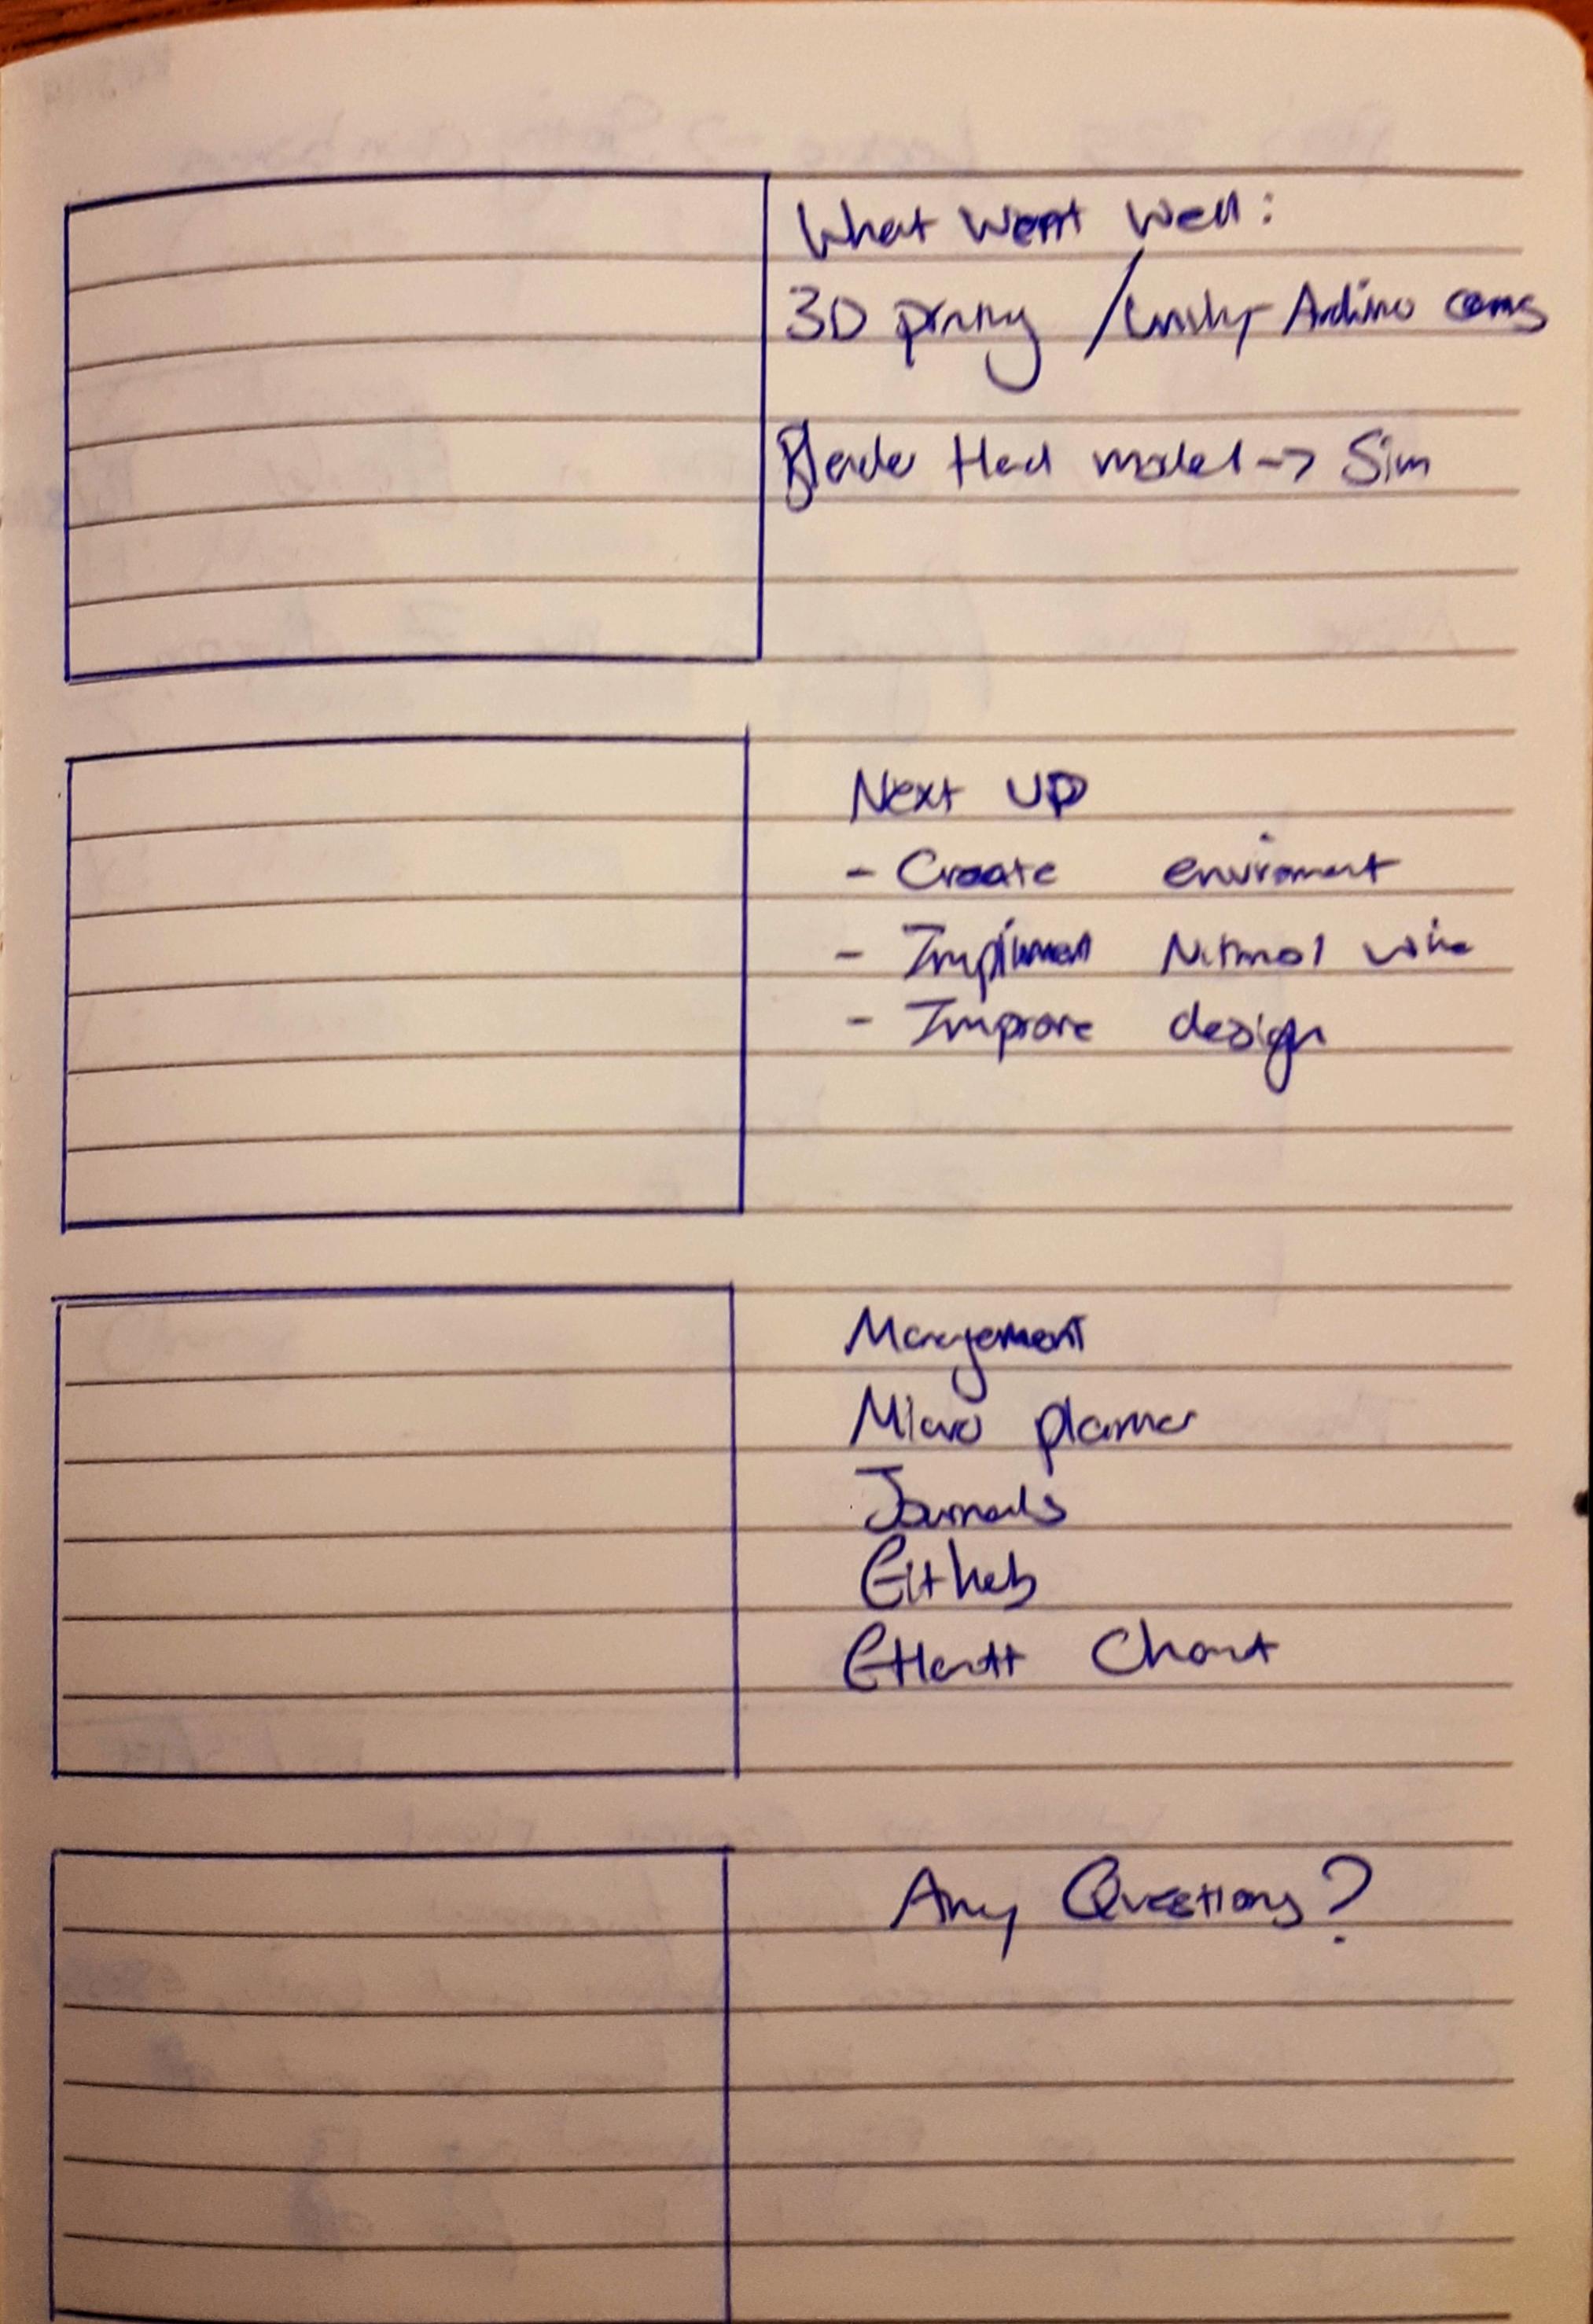 What Went Well:
3D prining / Unity-Ardino coms
Blender Hand model -> Sim
Next UP
- Create enviroment
- Impliment Nitinol wire
- Improve design
Management
Micro planner
Journals
Github
Ghantt Chart
Any Questions?